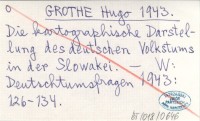 0
GROTHE Hugo 1943.
Die kartographische Darstel-
lung des deutschen Volkstums
in der Slowakei. — W:
Deutschtumsfragen 1943:
126-134.